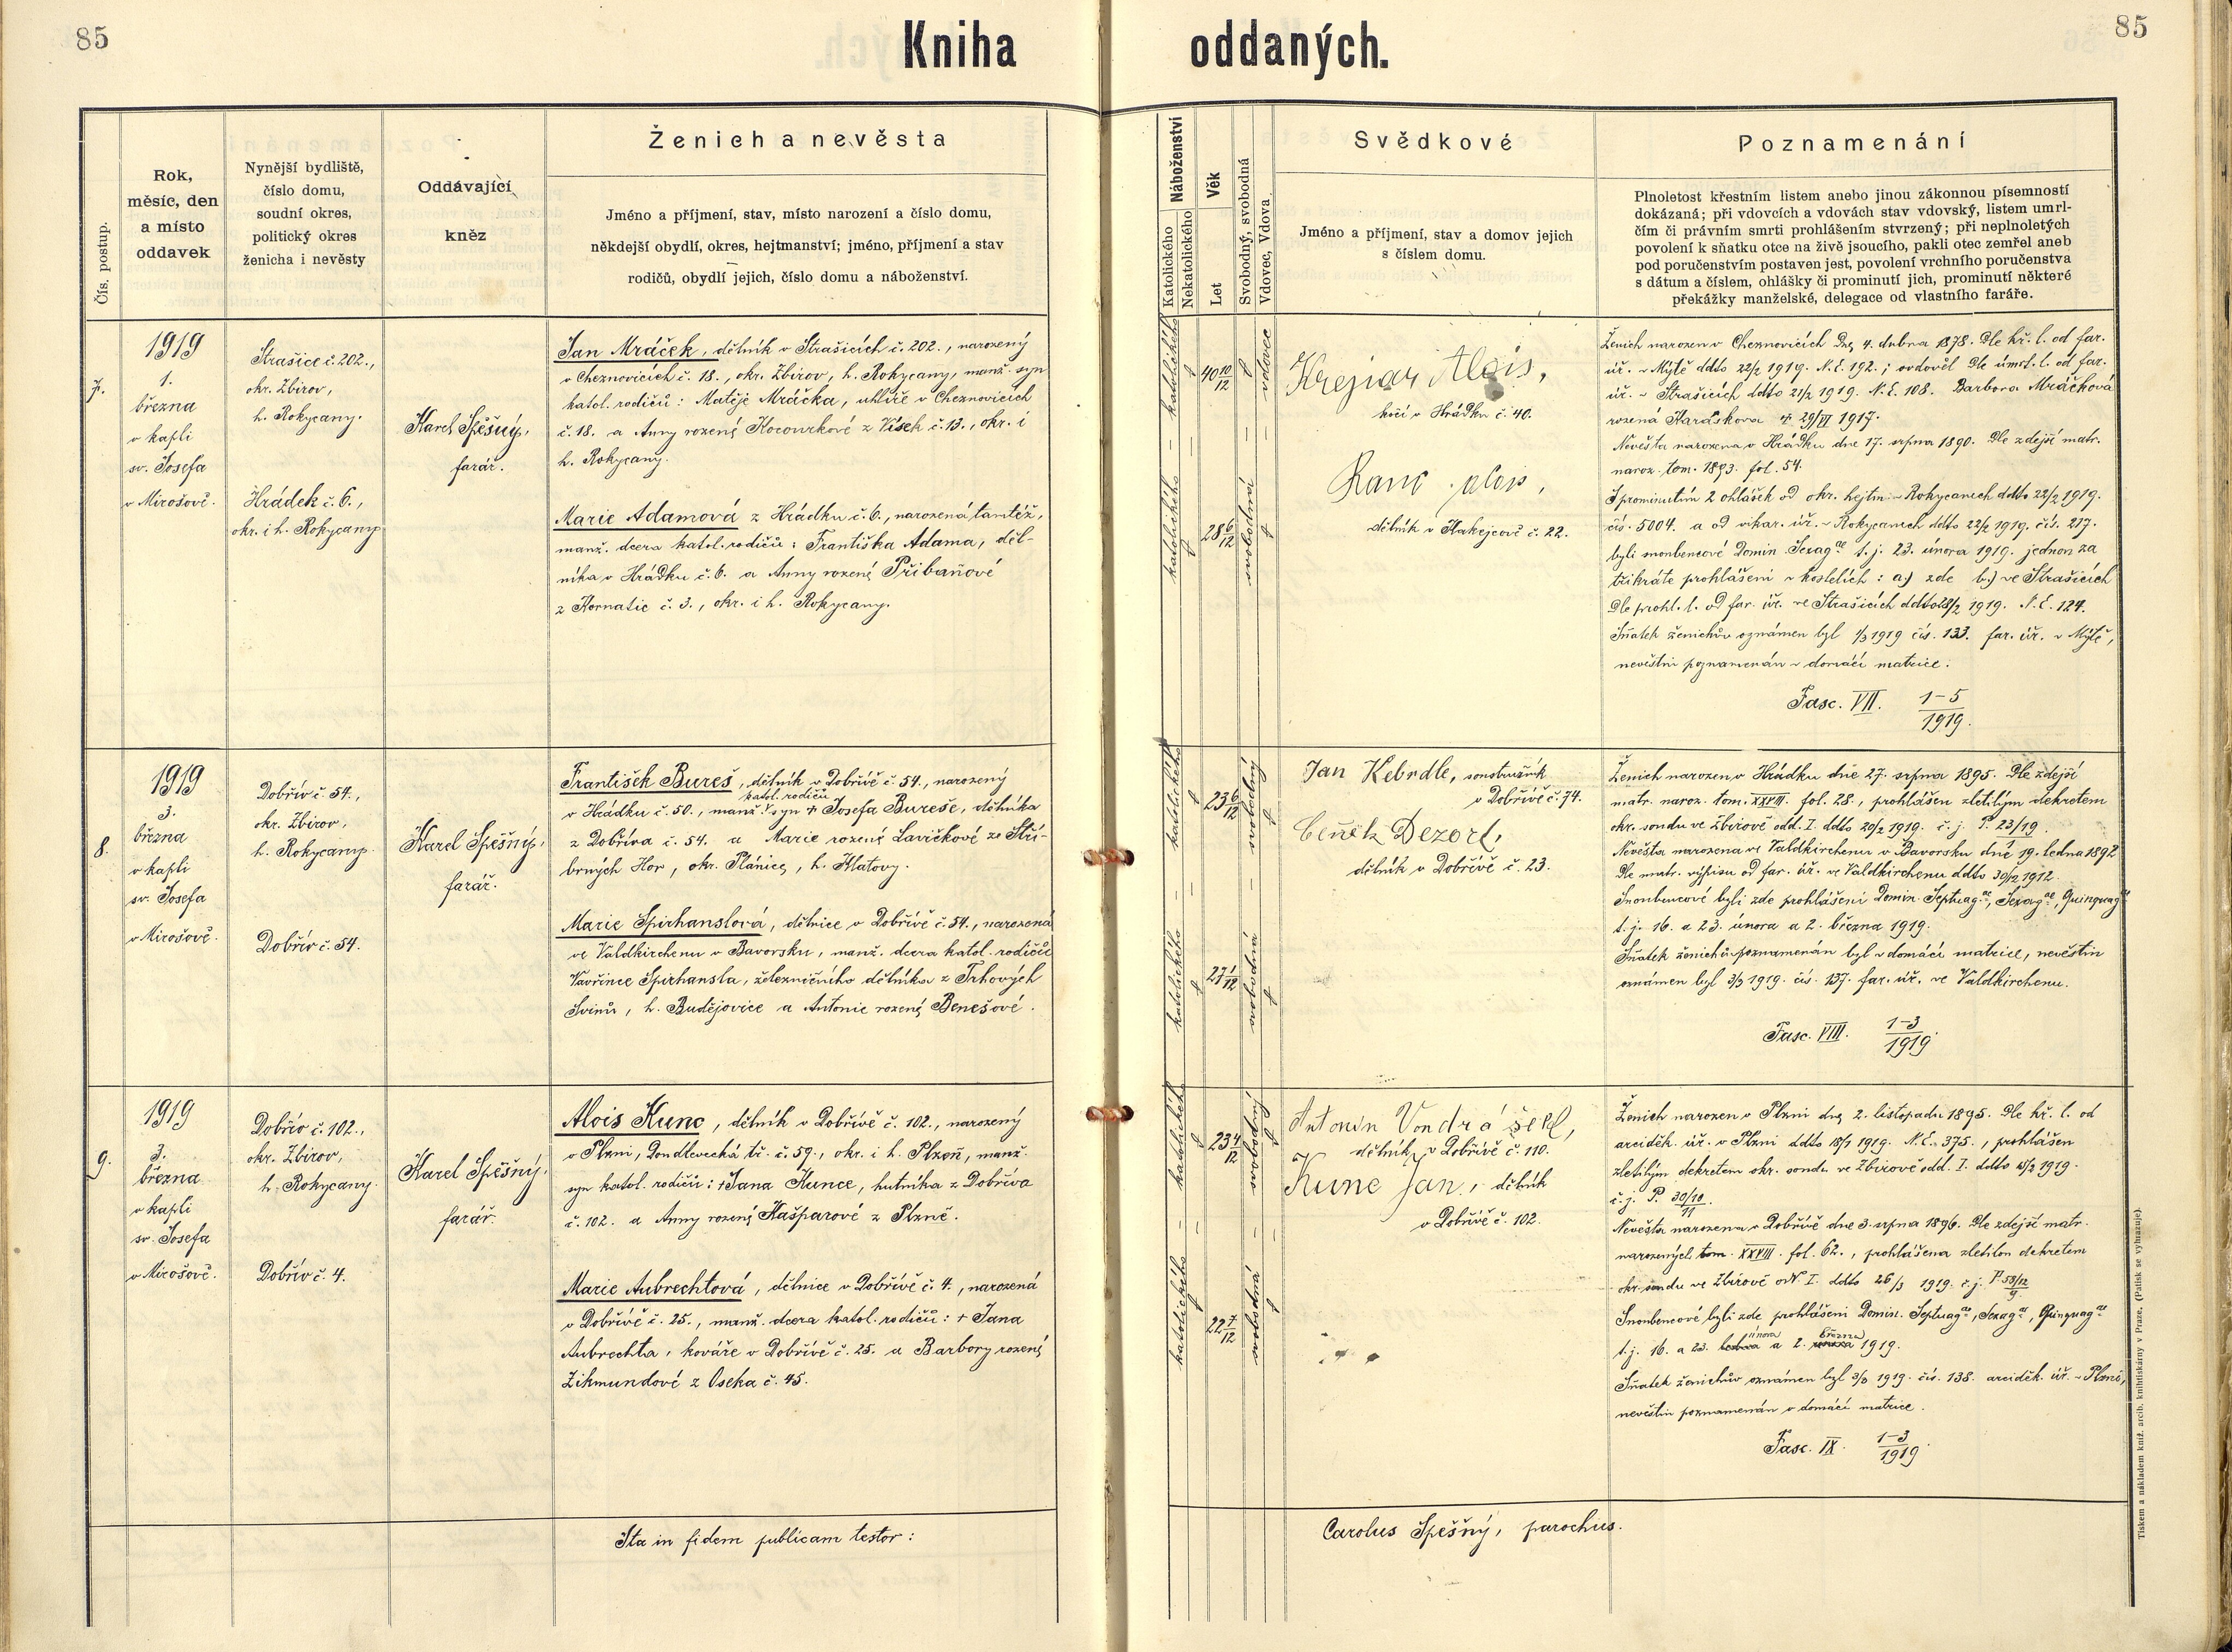 85
Kniha oddaných.
85
Čís. postup.
Rok,
měsíc, den
a místo
oddavek
Nynější bydliště,
číslo domu,
soudní okres,
politický okres
ženicha i nevěsty
Oddávající
kněz
Ženich a nevěsta
Jméno a příjmení, stav, místo narození a číslo domu,
někdejší obydlí, okres, hejtmanství; jméno, příjmení a stav
rodičů, obydlí jejich, číslo domu a náboženství.
Náboženství
Katolického
Nekatolického
Věk
Let
Svobodný, svobodná
Vdovec, Vdova
Svědkové
Jméno a příjmení, stav a domov jejich
s číslem domu.
Poznamenání
Plnoletost křestním listem anebo jinou zákonnou písemností
dokázaná; při vdovcích a vdovách stav vdovský, listem umrl-
čím či právním smrti prohlášením stvrzený; při neplnoletých
povolení k sňatku otce na živě jsoucího, pakli otec zemřel aneb
pod poručenstvím postaven jest, povolení vrchního poručenstva
s dátum a číslem, ohlášky či prominutí jich, prominutí některé
překážky manželské, delegace od vlastního faráře.
7.
1919
1.
března
v kapli
sv. Josefa
v Mirošově.
Strašice č. 202.,
okr. Zbirov,
h. Rokycany.
Hrádek č. 6.,
okr. i h. Rokycany
Karel Spěšný,
farář.
Jan Mráček, dělník v Strašicích č. 202., narozený
v Cheznovicích č. 18., okr. Zbirov, h. Rokycany, manž. syn
katol. rodičů: Matěje Mráčka, uhlíře v Cheznovicích
č. 18. a Anny rozené Kocourkové z Vísek č. 13., okr. i
h. Rokycany.
Marie Adamová z Hrádku č. 6., narozená tamtéž,
manž. dcera katol. rodičů: Františka Adama, děl-
níka v Hrádku č. 6. a Anny rozené Přibaňové
z Kornatic č. 3., okr. i h. Rokycany.
katolického
40 10/12
vdovec
katolického
28 6/12
svobodná
Krejcar Alois,
kočí v Hrádku č. 40.
Ranc Alois,
dělník v Hakejcově č. 22.
Ženich narozen v Cheznovicích dne 4. dubna 1878. Dle kř. l. od far.
úř. v Mýtě ddto 22/2 1919. N. E. 192.; ovdověl dle úmrt. l. od far.
úř. v Strašicích ddto 21/2 1919. N. E. 108. Barbora Mráčková
rozená Haraškova † 29/VI 1917.
Nevěsta narozena v Hrádku dne 17. srpna 1890. Dle zdejší matr.
naroz. tom. 1893. fol. 54.
S prominutím 2 ohlášek od okr. hejtm. v Rokycanech ddto 22/2 1919.
čís. 5004. a od vikar. úř. v Rokycanech ddto 22/2 1919. čís. 217.
byli snoubencové Domin. Sexag.ae t. j. 23. února 1919. jednou za
třikráte prohlášeni v kostelích: a) zde b) ve Strašicích
Dle prohl. l. od far. úř. ve Strašicích ddto 28/2 1919. N. E. 124.
Sňatek ženichův oznámen byl 1/3 1919 čís. 133. far. úř. v Mýtě,
nevěstin poznamenán v domácí matrice.
Fasc. VII. 1-5/1919.
8.
1919
3.
března
v kapli
sv. Josefa
v Mirošově.
Dobřív č. 54.,
okr. Zbirov,
h. Rokycany.
Dobřív č. 54.
Karel Spěšný,
farář.
František Bureš, dělník v Dobřívě č. 54., narozený
katol. rodičů
v Hrádku č. 50., manž. syn † Josefa Bureše, dělníka
z Dobříva č. 54. a Marie rozené Lavičkové ze Stří-
brných Hor, okr. Plánice, h. Klatovy.
Marie Spirhanslová, dělnice v Dobřívě č. 54., narozená
ve Valdkirchenu v Bavorsku, manž. dcera katol. rodičů
Vavřince Spirhansla, železničního dělníka z Trhových
Svinů, h. Budějovice a Antonie rozené Benešové.
katolického
23 6/12
svobodný
katolického
27 1/12
svobodná
Jan Kebrdle, soustružník
v Dobřívě č. 74.
Čeněk Dezort,
dělník v Dobřívě č. 23.
Ženich narozen v Hrádku dne 27. srpna 1895. Dle zdejší
matr. naroz. tom. XXVIII. fol. 28., prohlášen zletilým dekretem
okr. soudu ve Zbirově odd. I. ddto 20/2 1919. č. j. P. 23/19.
Nevěsta narozena ve Valdkirchenu v Bavorsku dne 19. ledna 1892
Dle matr. výpisu od far. úř. ve Valdkirchenu ddto 30/12 1912.
Snoubencové byli zde prohlášeni Domin. Septuag.ae, Sexag.ae, Quinquag.ae
t. j. 16. a 23. února a 2. března 1919.
Sňatek ženichův poznamenán byl v domácí matrice, nevěstin
oznámen byl 3/3 1919. čís. 137. far. úř. ve Valdkirchenu.
Fasc. VIII. 1-3/1919.
9.
1919
3.
března
v kapli
sv. Josefa
v Mirošově.
Dobřív č. 102.,
okr. Zbirov,
h. Rokycany.
Dobřív č. 4.
Karel Spěšný,
farář.
Alois Kunc, dělník v Dobřívě č. 102., narozený
v Plzni, Doudlevecká tř. č. 59., okr. i h. Plzeň, manž.
syn katol. rodičů: † Jana Kunce, hutníka z Dobříva
č. 102. a Anny rozené Kašparové z Plzně.
Marie Aubrechtová, dělnice v Dobřívě č. 4., narozená
v Dobřívě č. 25., manž. dcera katol. rodičů: † Jana
Aubrechta, kováře v Dobřívě č. 25. a Barbory rozené
Zikmundové z Oseka č. 45.
katolického
23 4/12
svobodný
katolického
22 7/12
svobodná
Antonín Vondrášek,
dělník v Dobřívě č. 110.
Kunc Jan, dělník
v Dobřívě č. 102.
Ženich narozen v Plzni dne 2. listopadu 1895. Dle kř. l. od
arciděk. úř. v Plzni ddto 18/1 1919. N. E. 375., prohlášen
zletilým dekretem okr. soudu ve Zbirově odd. I. ddto 15/2 1919.
č. j. P. 30/18/11.
Nevěsta narozena v Dobřívě dne 3. srpna 1896. Dle zdejší matr.
narozených tom. XXVIII. fol. 62., prohlášena zletilou dekretem
okr. soudu ve Zbirově odd. I. ddto 26/3 1919. č. j. P 58/12/9
Snoubencové byli zde prohlášeni Domin. Septuag.ae, Sexag.ae, Quinquag.ae
února března
t. j. 16. a 23. a 2. 1919.
Sňatek ženichův oznámen byl 3/3 1919. čís. 138. arciděk. úř. v Plzni,
nevěstin poznamenán v domácí matrice.
Fasc. IX. 1-3/1919.
Ita in fidem publicam testor:
Carolus Spěšný, parochus.
Tiskem a nákladem kníž. arcib. knihtiskárny v Praze. (Patisk se vyhrazuje).